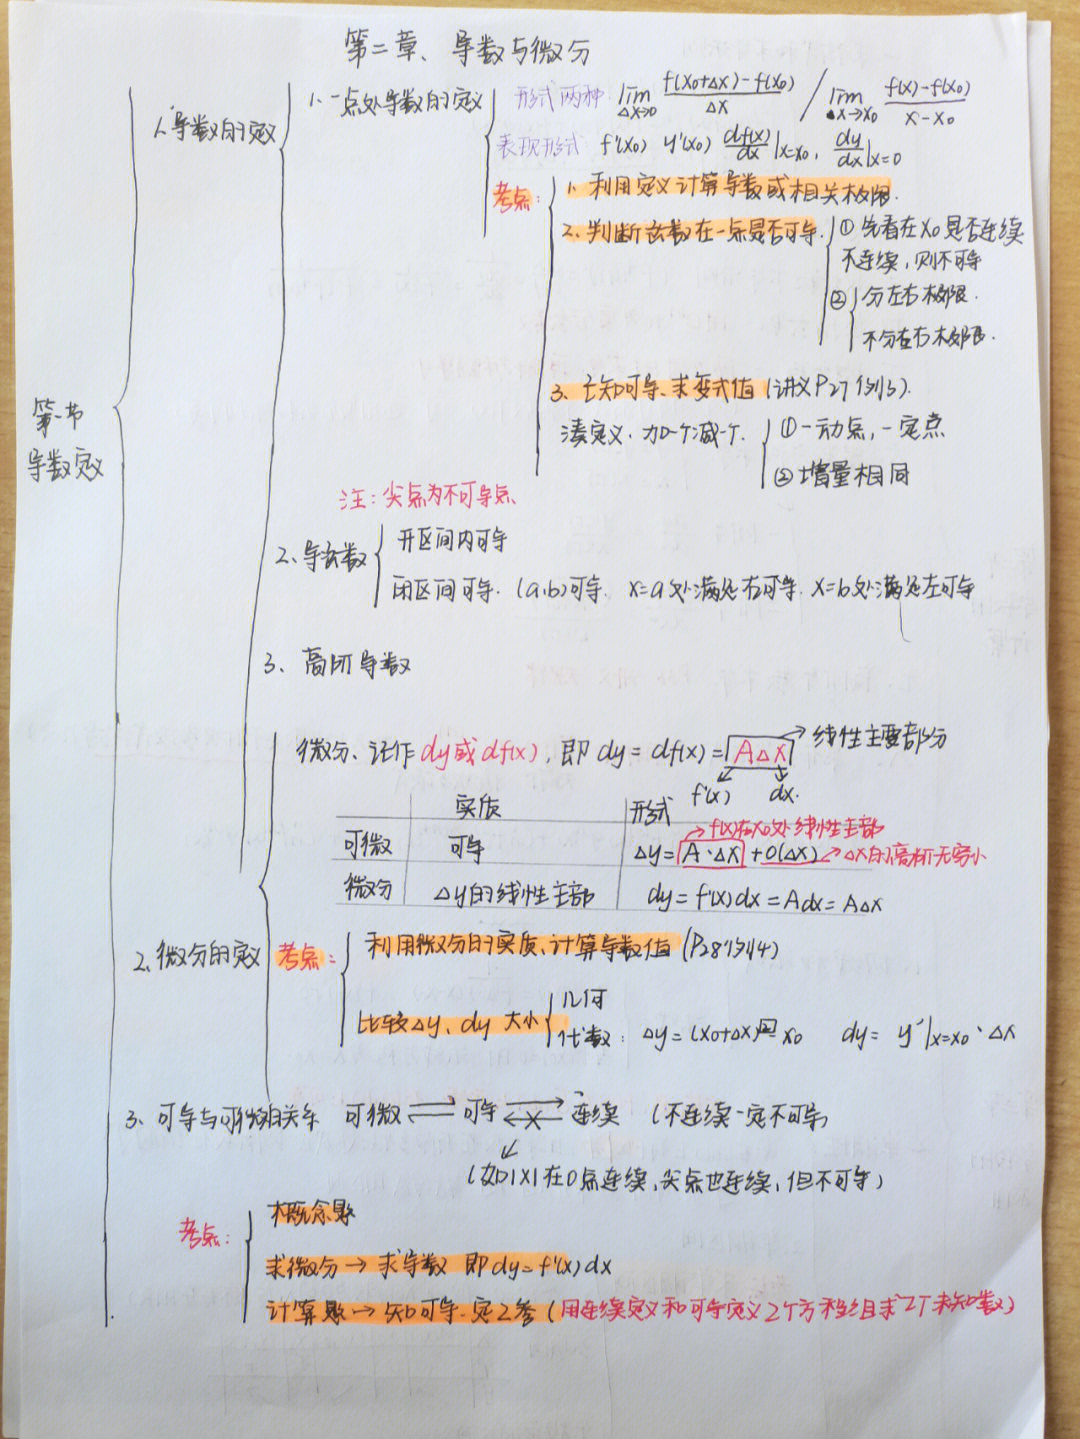 第二章、导数与微分
第一节
导数定义
1、导数的定义
1、一点处导数的定义
形式两种 lim Δx→0 f(x₀+Δx)-f(x₀) / Δx / lim x→x₀ f(x)-f(x₀) / x-x₀
表现形式 f'(x₀) y'(x₀) df(x)/dx|x=x₀, dy/dx|x=0
考点:
1、利用定义计算导数或相关极限.
2、判断函数在一点是否可导.
① 先看在x₀是否连续
不连续,则不可导
② 分左右极限.
不分左右极限.
3、已知可导、求变式值(讲义P27例3).
凑定义.加一个减一个.
①一动点,一定点
②增量相同
注:尖点为不可导点
2、导函数
开区间内可导
闭区间可导.(a,b)可导. x=a处满足右可导. x=b处满足左可导
3、高阶导数
2、微分的定义
微分、记作dy或df(x),即dy=df(x)=AΔx → 线性主要部分
f'(x) dx.
实质 形式
→f(x)在x₀处线性主部
可微 可导 Δy=A·ΔX+o(Δx)→Δx的高阶无穷小
微分 Δy的线性主部 dy=f'(x)dx=Adx=AΔx
考点:
利用微分的实质、计算导数值(P28例4)
比较Δy、dy大小
几何
代数: Δy=(x₀+Δx) - x₀ dy= y'|x=x₀·Δx
3、可导与可微相关系 可微 ⇌ 可导 ⇌ 连续 (不连续一定不可导)
(如|x|在0点连续,尖点也连续,但不可导)
考点:
概念题
求微分→求导数 即dy=f'(x)dx
计算题→知可导、定2参(用连续定义和可导定义2个方程组求2个未知数)